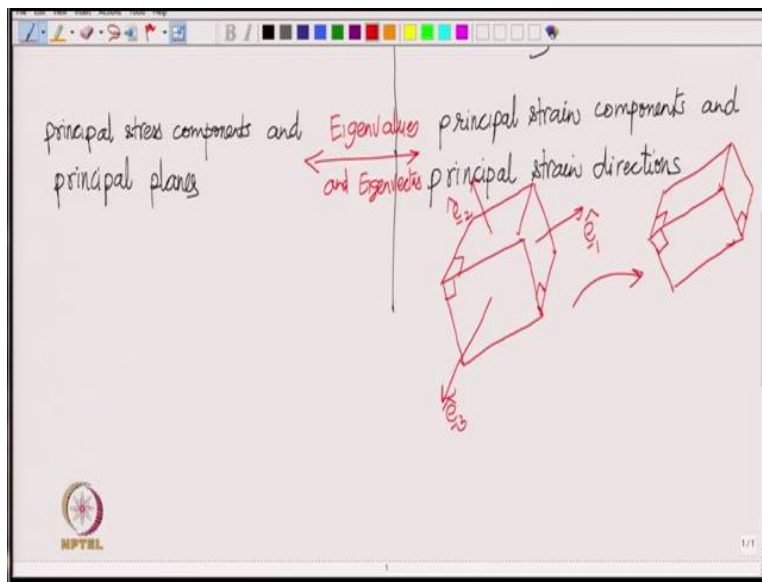 File Edit View Insert Actions Tools Help
B I
principal stress components and
principal planes
Eigenvalues
and Eigenvectors
principal strain components and
principal strain directions
ê2
ê1
ê3
NPTEL
1/1
1